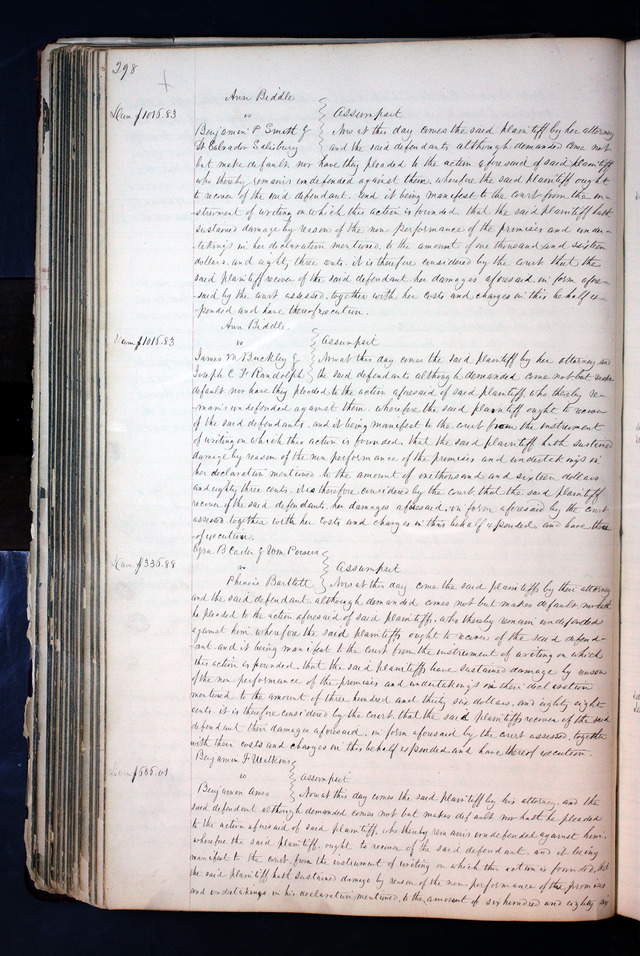 398
Ann Biddle
Dam $1016.83 vs Assumpsit
Benjamin P Smith & Now at this day comes the said plaintiff by her attorney
St Calvador Salisbury and the said defendants although demanded come not
but make default nor have they pleaded to the action aforesaid of said plaintiff
who thereby remains undefended against them. wherefore the said plaintiff ought
to recover of the said defendant. And it being manifest to the court from the in-
strument of writing on which this action is founded that the said plaintiff hath
sustained damage by reason of the non performance of the promises and under-
takings in her declaration mentioned, to the amount of one thousand and sixteen
dollars, and eighty three cents. it is therefore considered by the court that the
said plaintiff recover of the said defendant her damages aforesaid in form afore-
said by the court assessed, together with her costs and charges in this behalf ex-
pended and have thereof execution.
Ann Biddle.
Dam $1016.83 vs Assumpsit
James M Buckley & Now at this day comes the said plaintiff by her attorney and
Joseph C F Randolph the said defendants although demanded come not but make
default nor have they pleaded to the action aforesaid of said plaintiff, who thereby re-
mains undefended against them. wherefore the said plaintiff ought to recover
of the said defendants. and it being manifest to the court from the instrument
of writing on which this action is founded. that the said plaintiff hath sustained
damage by reason of the non performance of the promises and undertakings in
her declaration mentioned to the amount of one thousand and sixteen dollars
and eighty three cents. it is therefore considered by the court that the said plaintiff
recover of the said defendants her damages aforesaid, in form aforesaid by the court
assessed together with her costs and charges in this behalf expended and have there
of execution.
Ezra B Carter & Wm Powers
Dam $336.88 vs Assumpsit
Phineis Bartlett Now at this day come the said plaintiffs by their attorney
and the said defendant, although demanded comes not but makes default nor hath
he pleaded to the action aforesaid of said plaintiffs. who thereby remain undefended
against him wherefore the said plaintiffs ought to recover of the said defend-
ant and it being manifest to the court from the instrument of writing on which
this action is founded, that the said plaintiffs have sustained damage by reason
of the non performance of the promises and undertakings in their declaration
mentioned to the amount of three hundred and thirty six dollars, and eighty eight
cents. it is therefore considered by the court that the said plaintiffs recover of the said
defendant their damages aforesaid, in form aforesaid by the court assessed, together
with their costs and charges in this behalf expended and have thereof execution.
Benjamin F Watkins
Dam $686.01 vs Assumpsit
Benjamin Ames Now at this day comes the said plaintiff by his attorney. and the
said defendant although demanded comes not but makes default nor hath he pleaded
to the action aforesaid of said plaintiff, who thereby remains undefended against him.
wherefore the said plaintiff, ought to recover of the said defendant. and it being
manifest to the court, from the instrument of writing on which this action is founded, that
the said plaintiff hath sustained damage by reason of the non performance of the promises
and undertakings in his declaration mentioned, to the amount of six hundred and eighty six